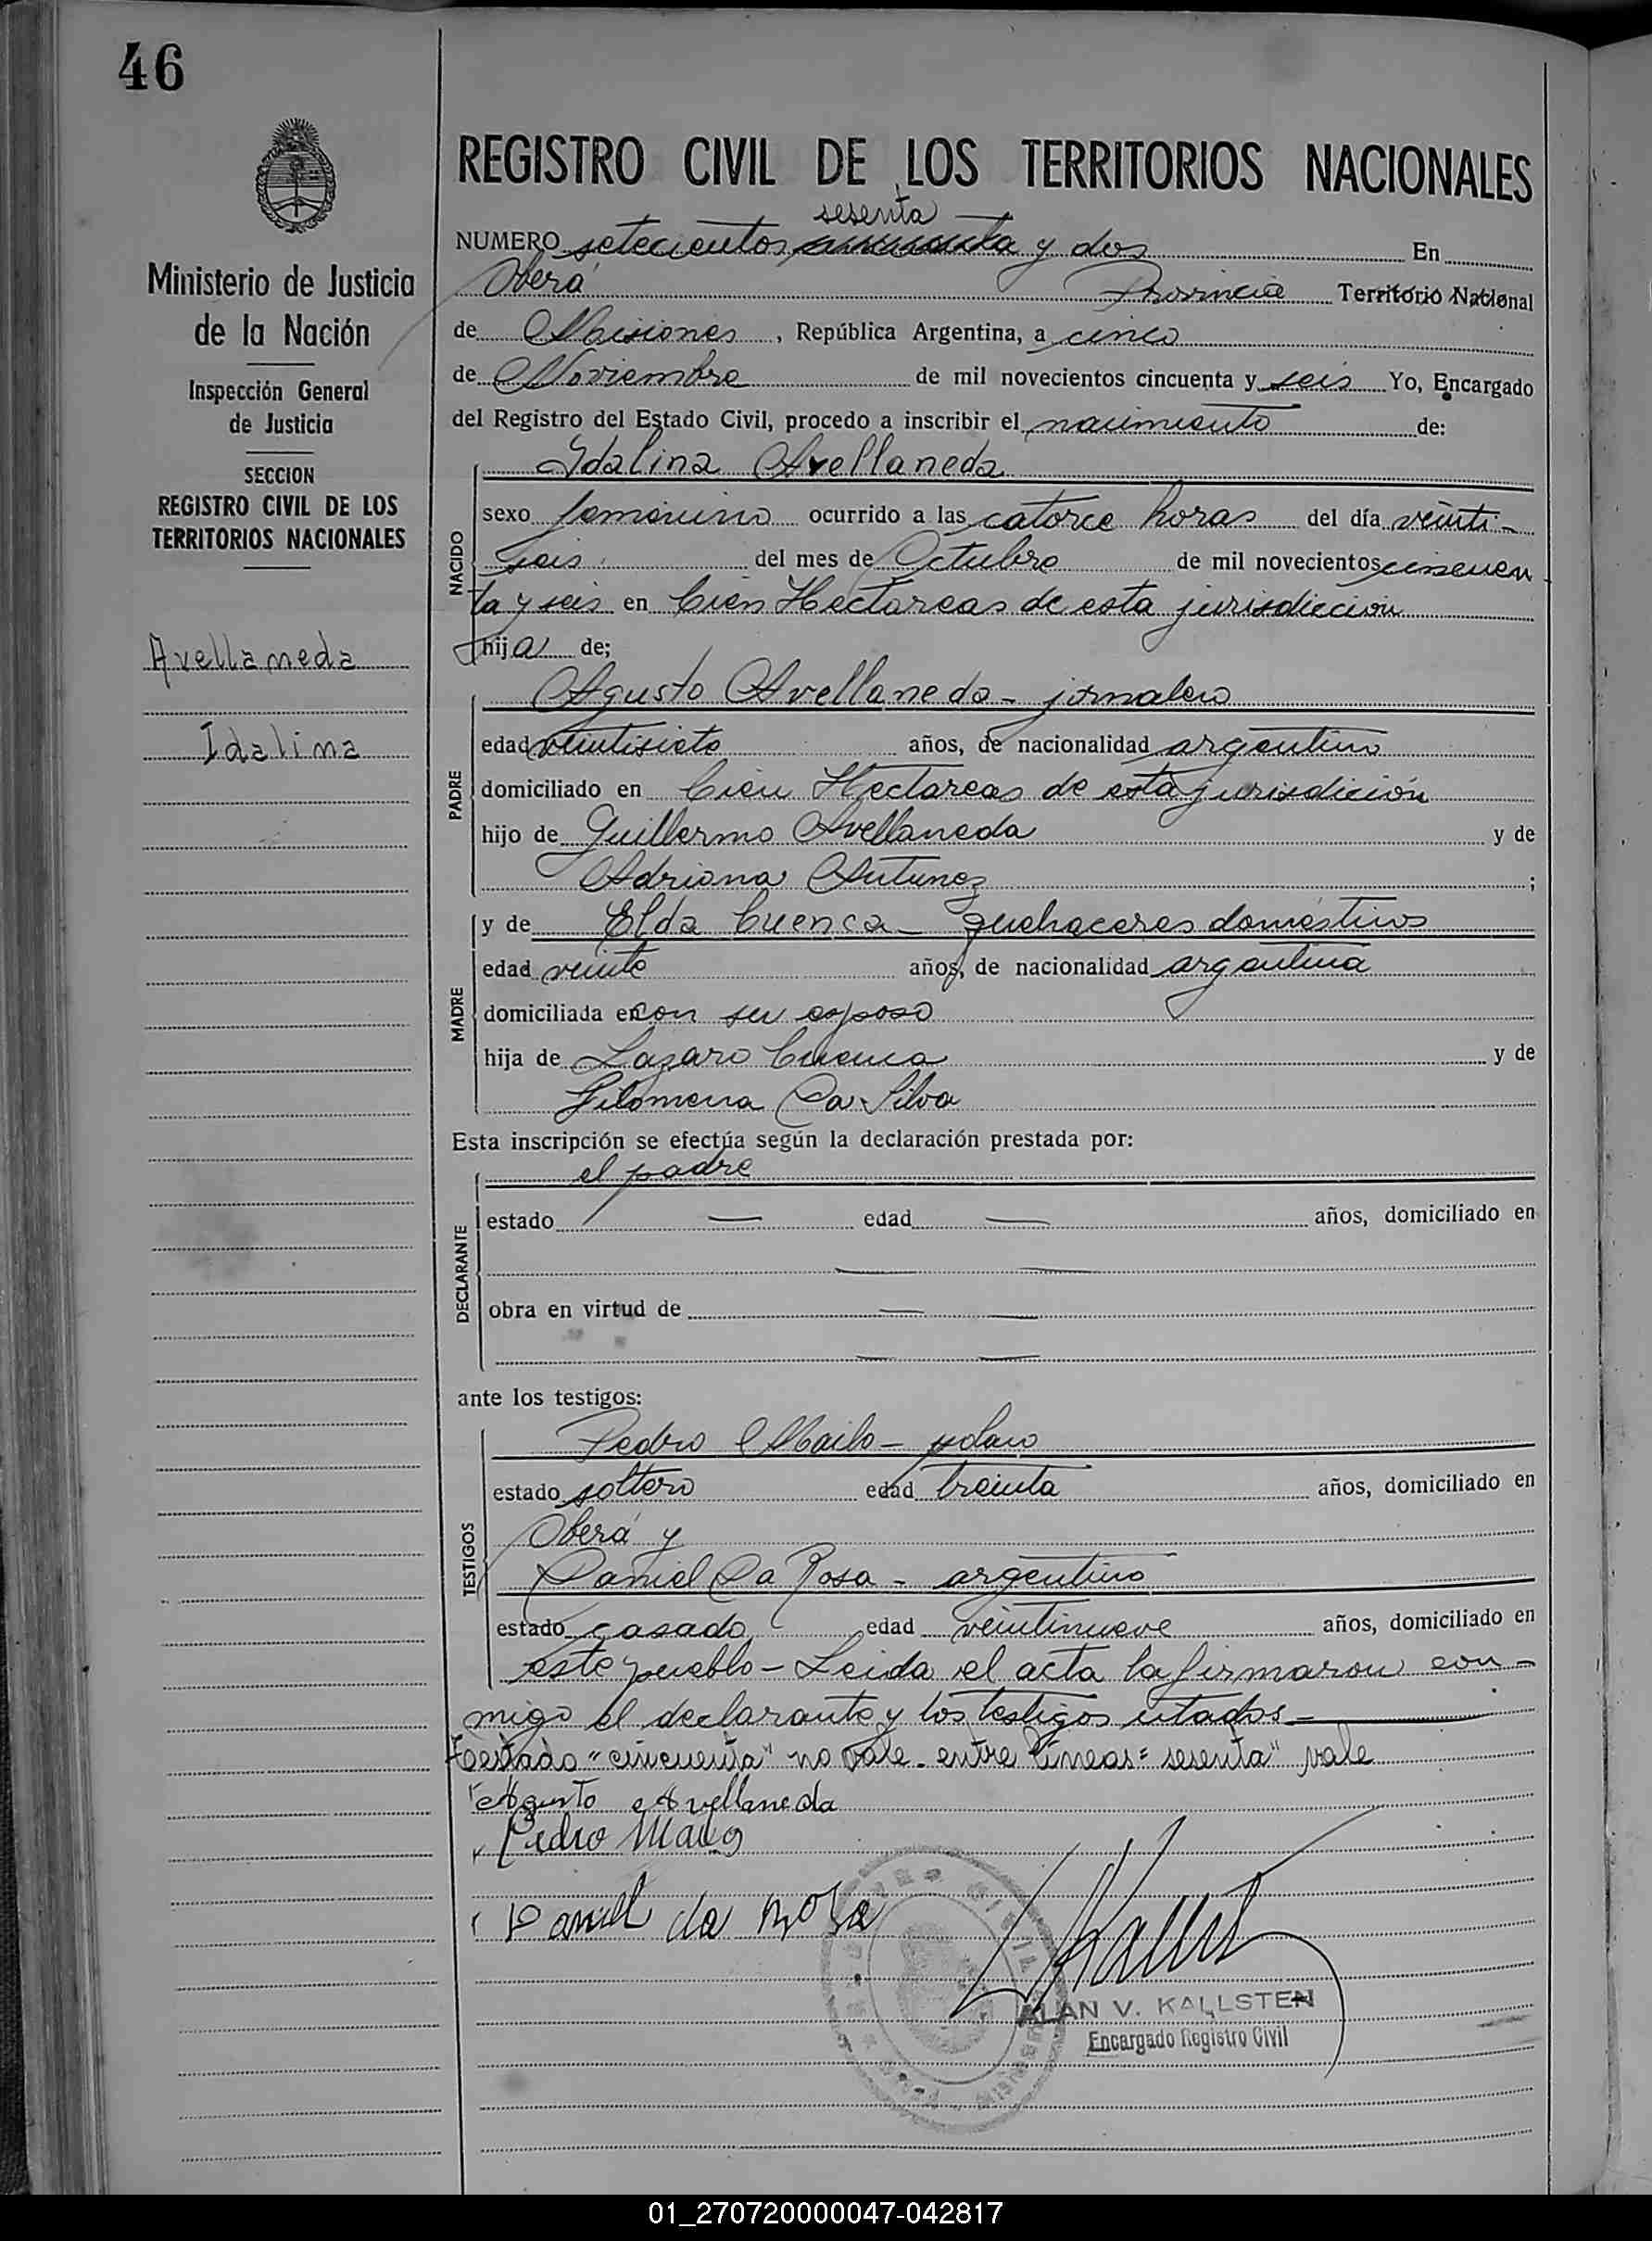 46
REGISTRO CIVIL DE LOS TERRITORIOS NACIONALES
sesenta
NUMERO setecientos cincuenta y dos En
Oberá Provincia Territorio Nacional
de Misiones, República Argentina, a cinco
de Noviembre de mil novecientos cincuenta y seis Yo, Encargado
del Registro del Estado Civil, procedo a inscribir el nacimiento de:
Idalina Avellaneda
NACIDO
sexo femenino ocurrido a las catorce horas del día veinti-
seis del mes de Octubre de mil novecientos cincuen
ta y seis en Cien Hectareas de esta jurisdiccion
hija de;
Agusto Avellaneda - jornalero
PADRE
edad veintisiete años, de nacionalidad argentino
domiciliado en Cien Hectareas de esta jurisdición
hijo de Guillermo Avellaneda y de
Adriana Antunez ;
y de Elda Cuenca - quehaceres domésticos
MADRE
edad veinte años, de nacionalidad argentina
domiciliada en con su esposo
hija de Lazaro Cuenca y de
Filomena Da Silva
Esta inscripción se efectúa según la declaración prestada por:
el padre
DECLARANTE
estado — edad — años, domiciliado en
— —
obra en virtud de — —
— —
ante los testigos:
TESTIGOS
Pedro -
estado soltero edad treinta años, domiciliado en
Oberá y
Daniel Da Rosa - argentino
estado casado edad veintinueve años, domiciliado en
este pueblo - Leida el acta la firmaron con-
migo el declarante y los testigos citados -
Testado "cincuenta" no vale. entre líneas= sesenta" vale
Agusto Avellaneda
Pedro
Daniel da Rosa
ALAN V. KALLSTEN
Encargado Registro Civil
Ministerio de Justicia
de la Nación
Inspección General
de Justicia
SECCION
REGISTRO CIVIL DE LOS
TERRITORIOS NACIONALES
Avellaneda
Idalina
01_270720000047-042817